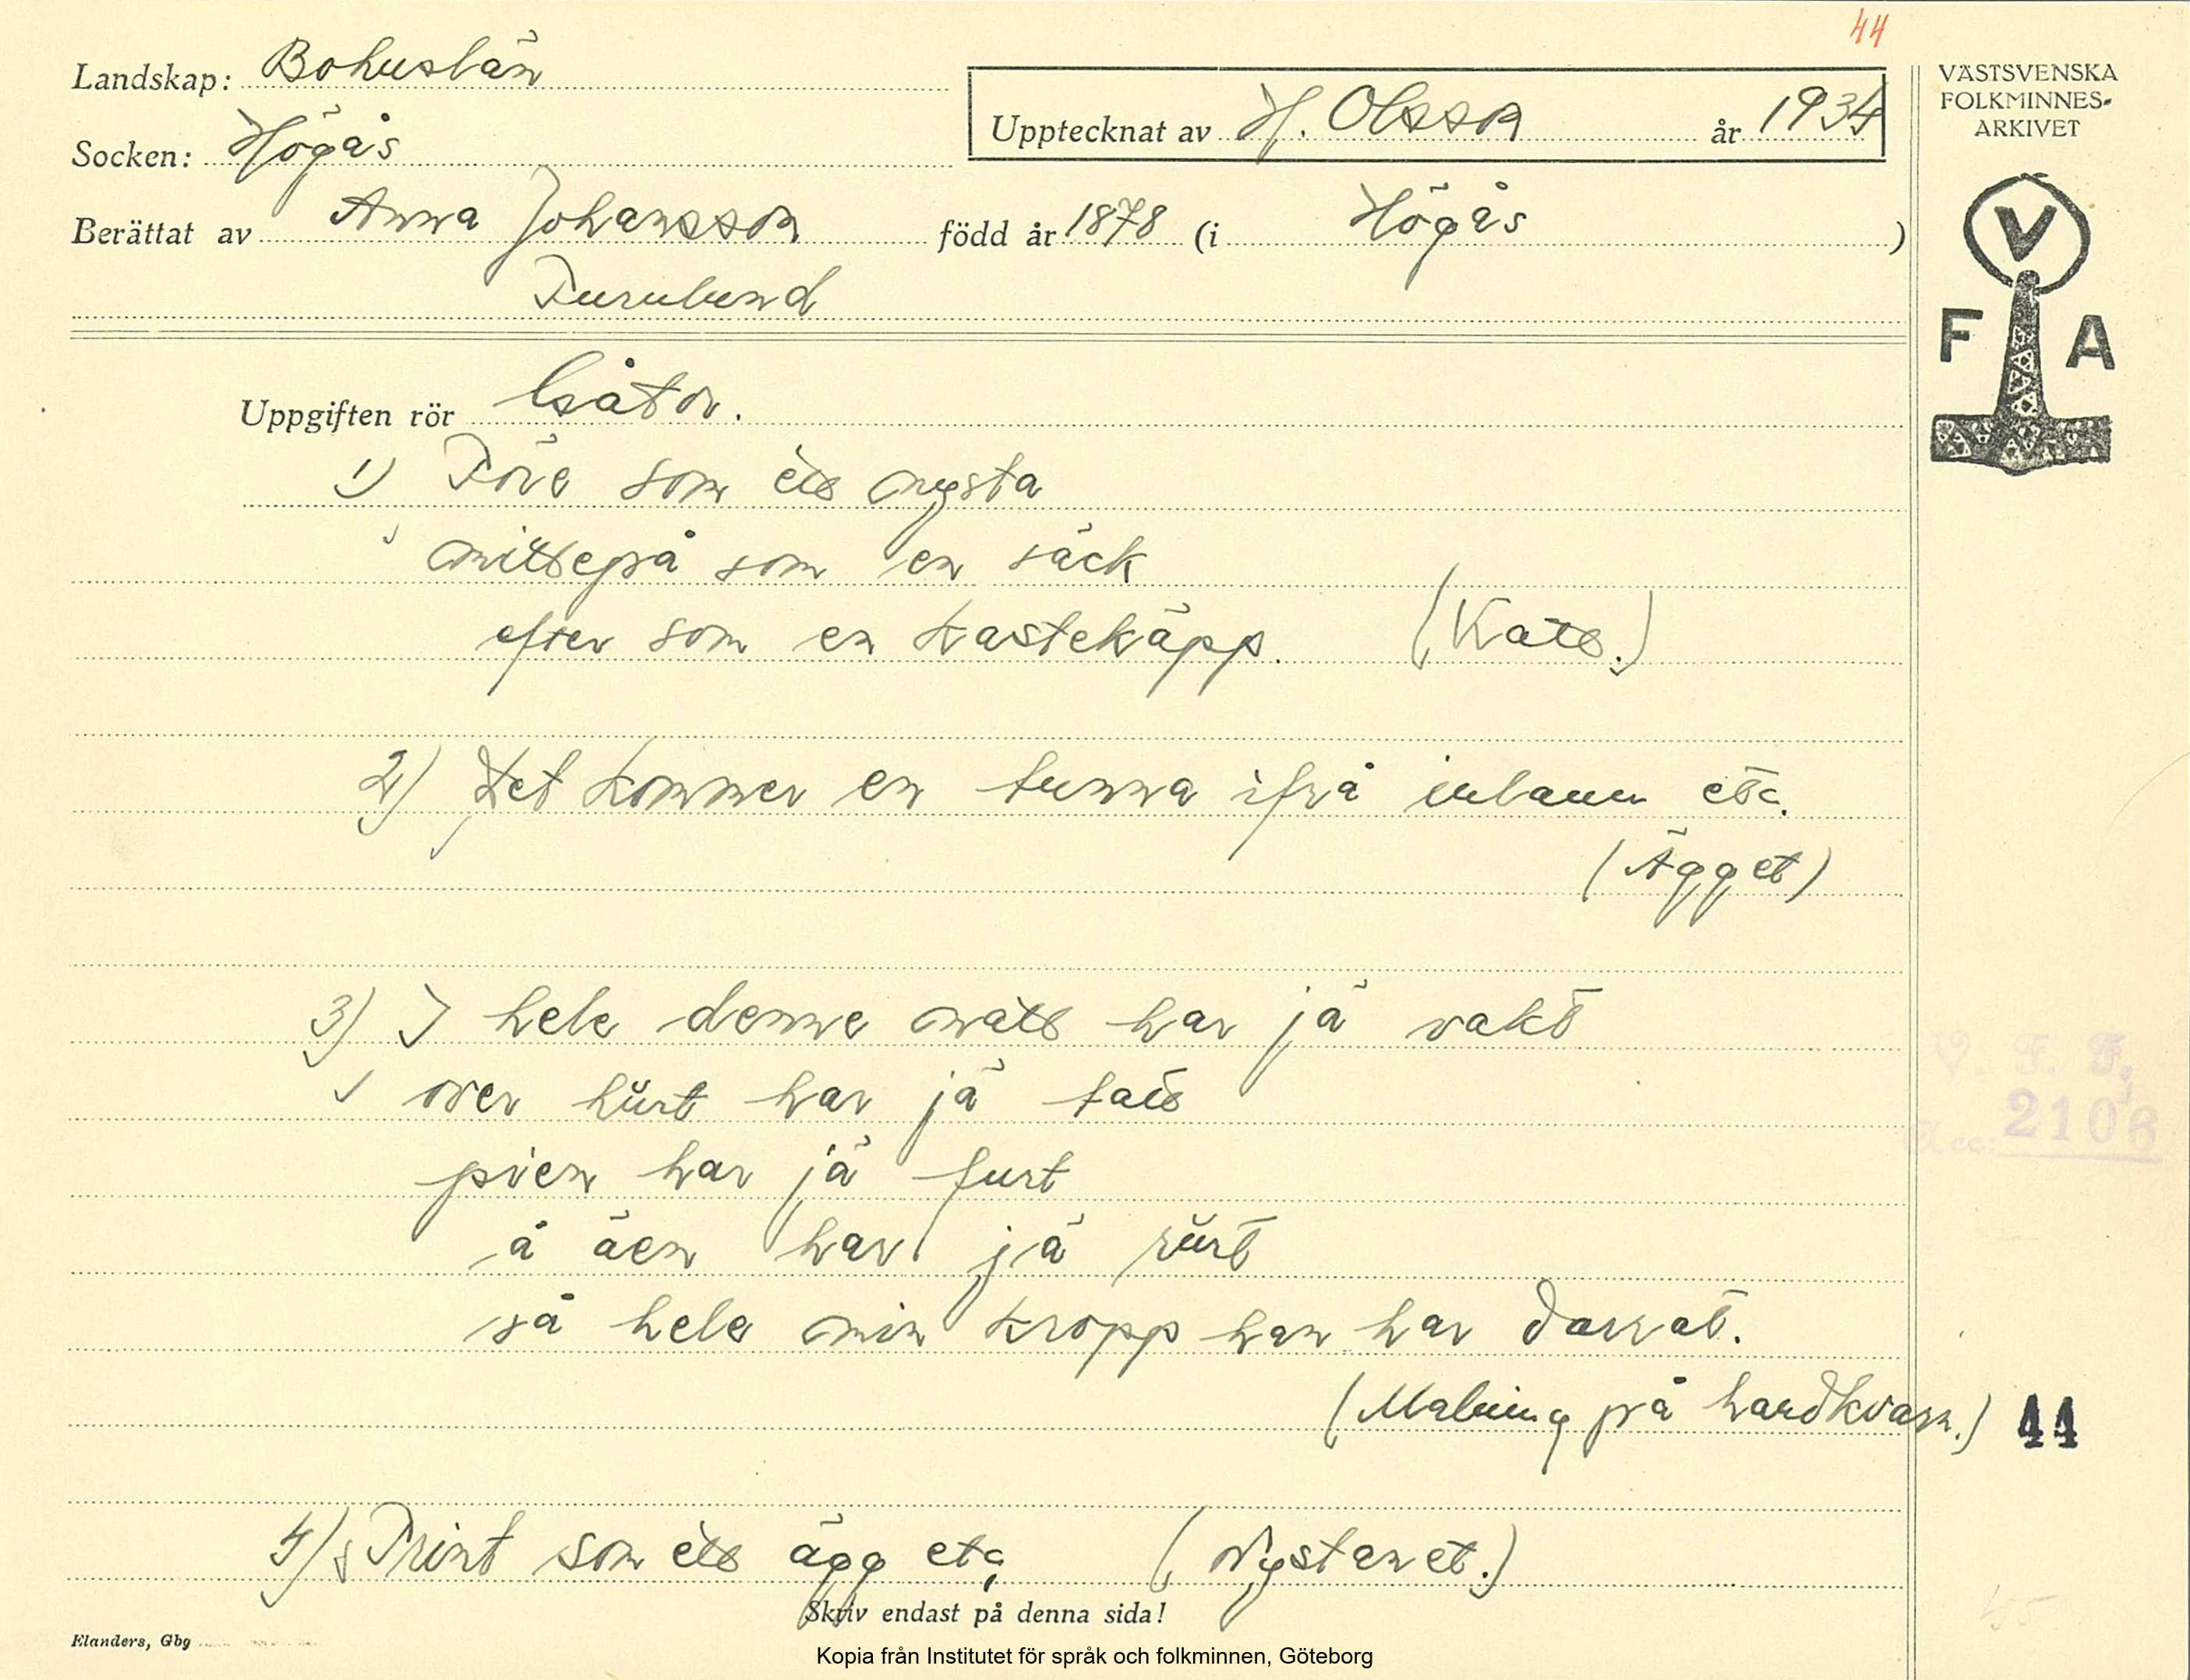 44
Landskap: Bohuslän
Socken: Högås
Upptecknat av H. Olsson år 1934
Berättat av Anna Johansson född år 1878 (i Högås)
Furulund
VÄSTSVENSKA
FOLKMINNES-
ARKIVET
V
F A
Uppgiften rör Gåtor.
1) Före som ett nysta
mitteppå som en säck
efter som en kastekäpp. (Katt.)
2) Det kommer en tunna ifrå inlann etc.
(Ägget)
3) I hele denne natt har jä vakt
over hürt har jä tatt
pien har jä furt
å äen har jä rürt
så hele min kropp han har darrat.
(Malning på handkvarn.)
V. F. F.
Acc: 2106
44
4) Trint som ett ägg etc (Nystanet.)
Skriv endast på denna sida!
Elanders, Gbg
Kopia från Institutet för språk och folkminnen, Göteborg